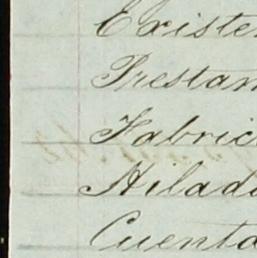 Existe
Prestan
Fabric
Hilad
Cuenta